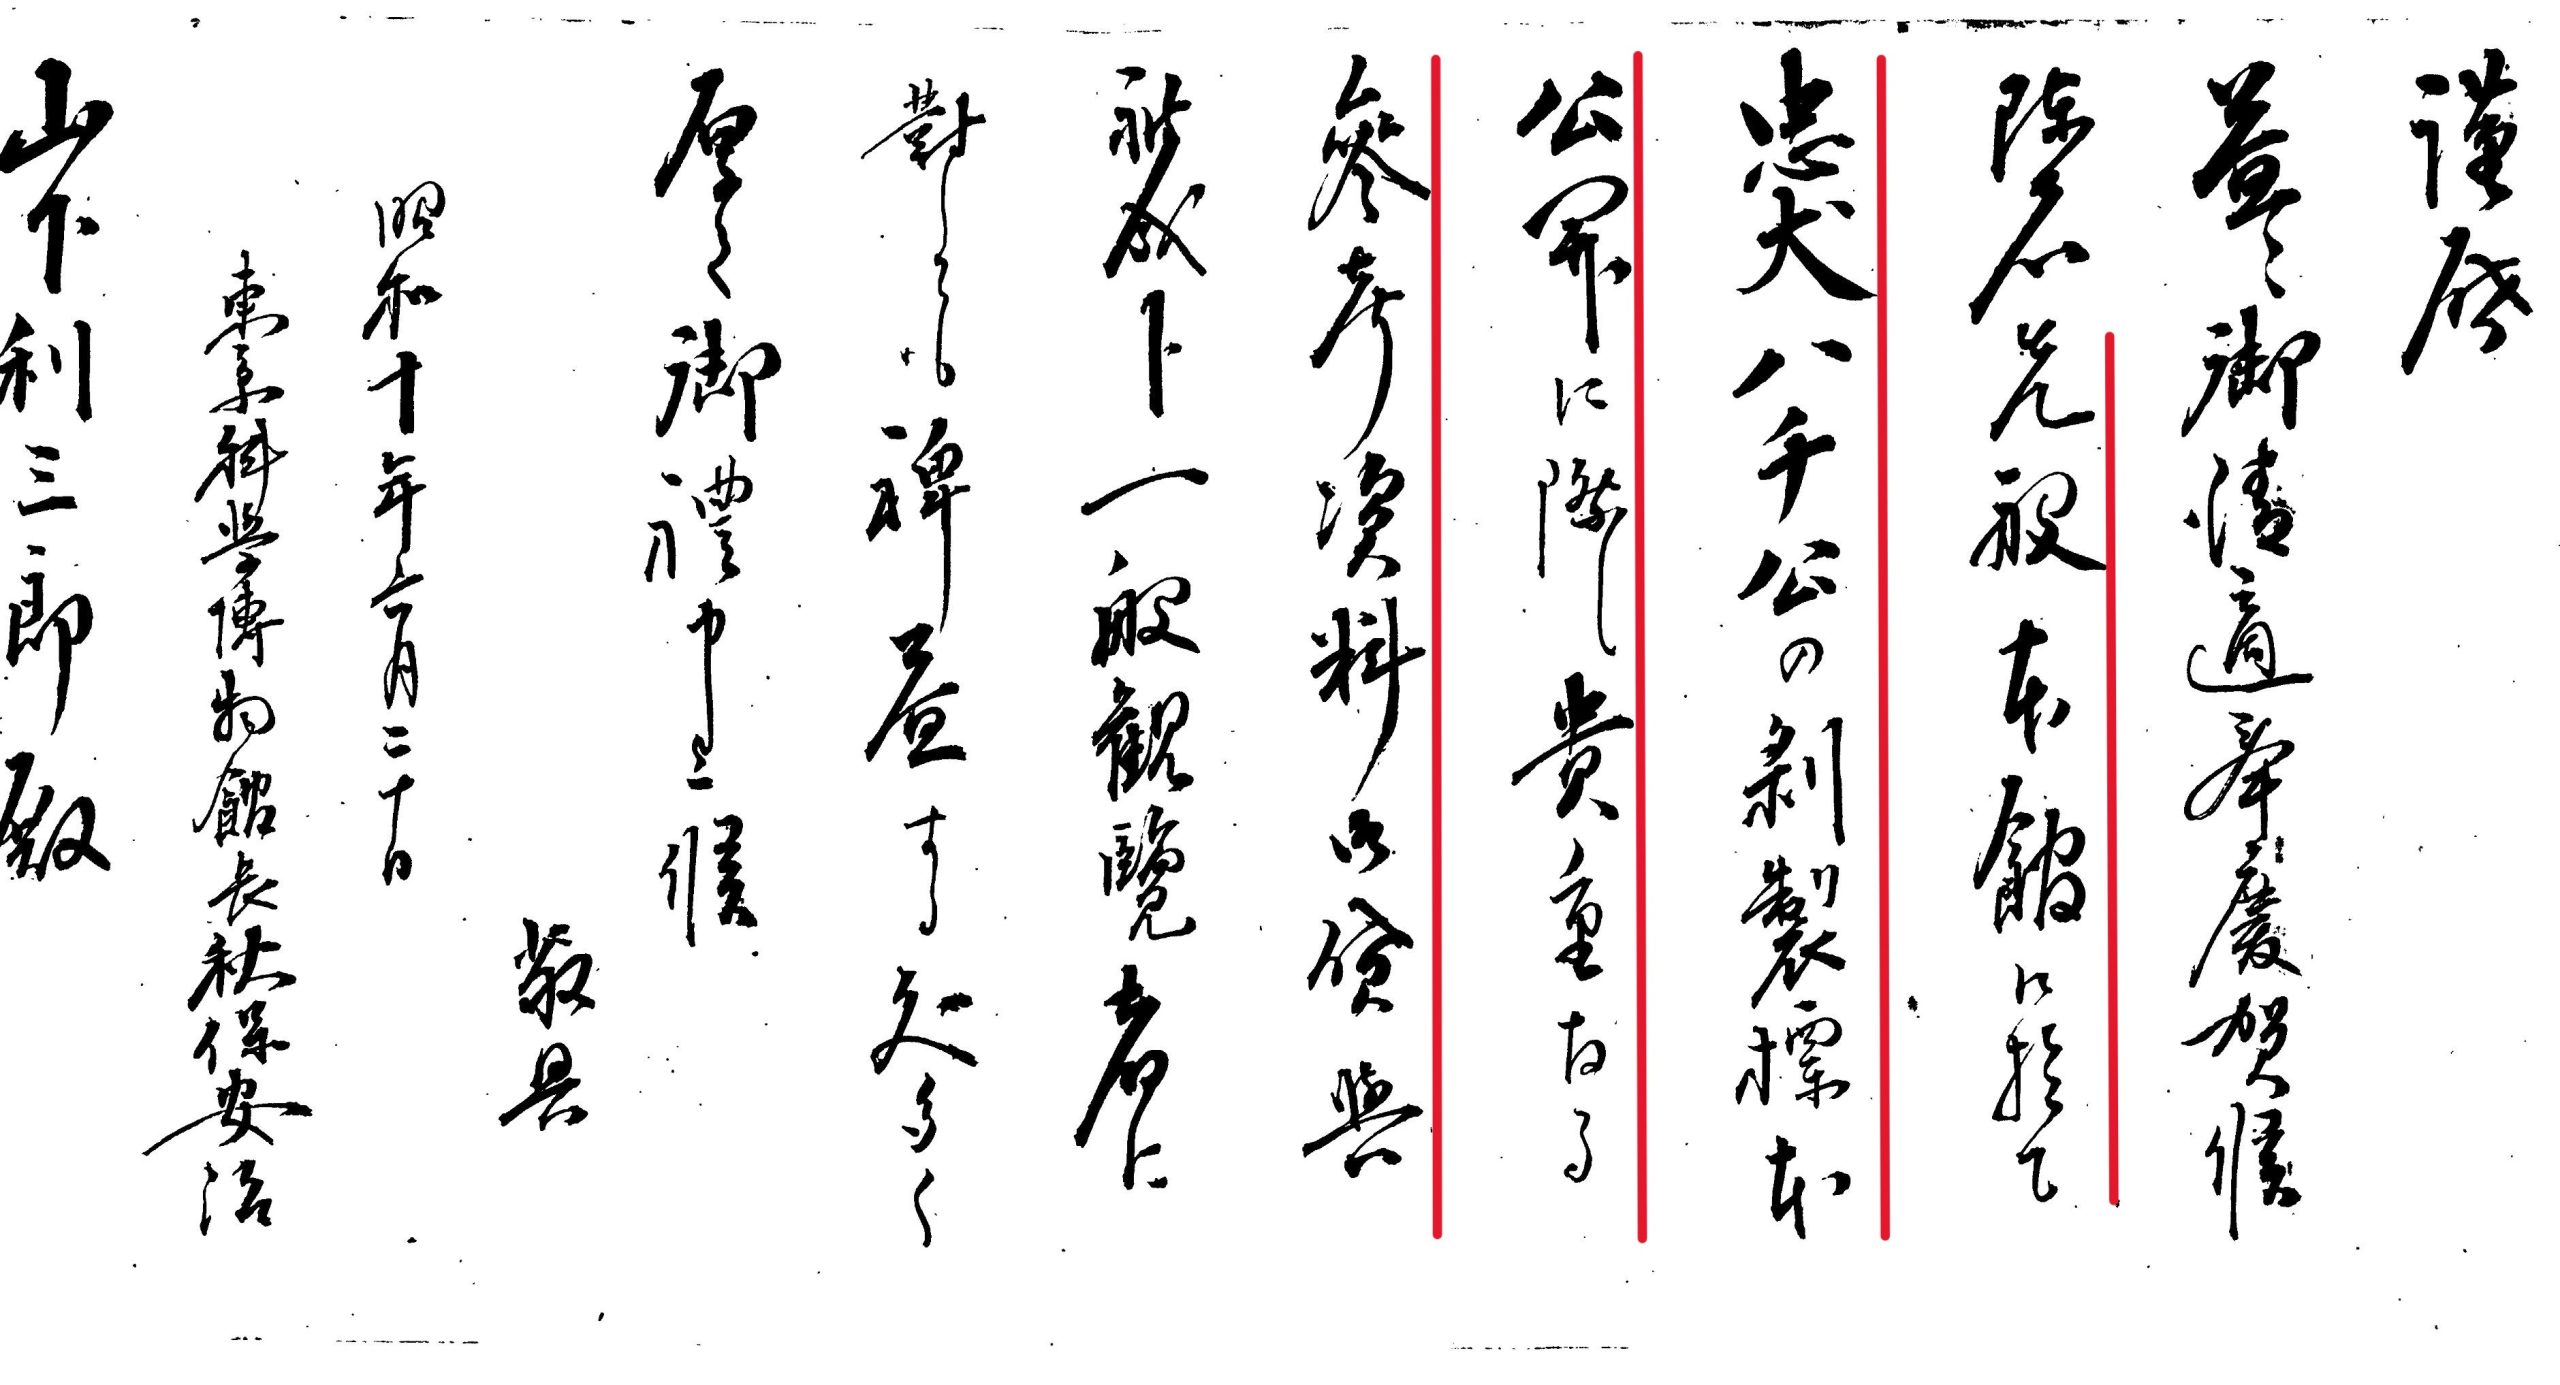 謹啓
益々御清適奉慶賀候
陳者先般本館に於て
忠犬ハチ公の剥製標本
公開に際し貴重なる
參考資料御貸與
被成下一般観覽者に
對しても裨益する処多く
厚く御禮申上候
敬具
昭和十年六月二十日
東京科学博物館長秋保安治
山下利三郎殿